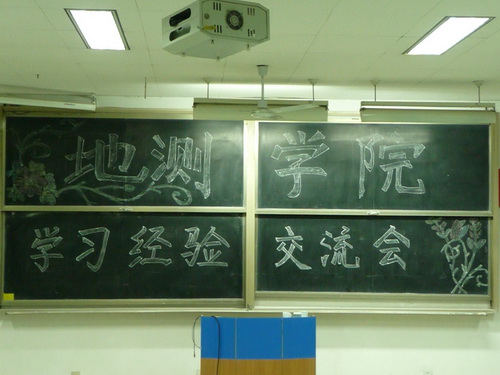 地测学院
学习经验交流会